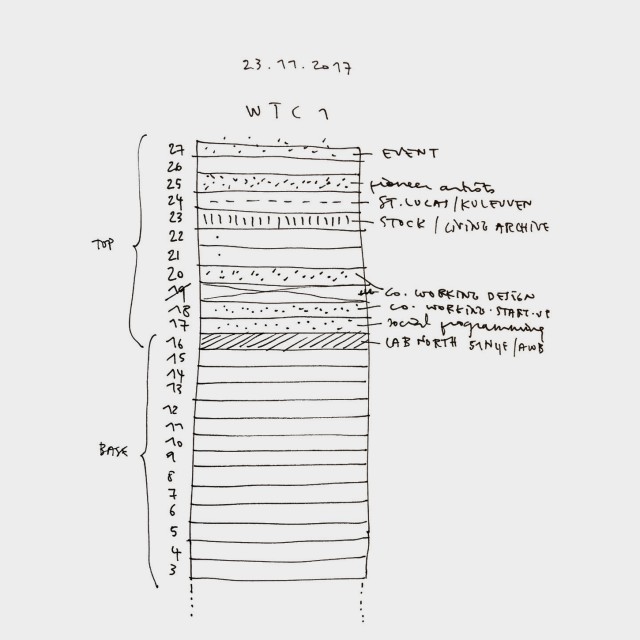 23.11.2017
WTC 1
27 EVENT
26
25 pioneer artists
24 ST. LUCAS/KULEUVEN
23 STOCK / LIVING ARCHIVE
22
TOP
21
20
19 CO. WORKING DESIGN
18 CO. WORKING. START-UP
17 social programming
16 LAB NORTH 51N4E/AWB
15
14
13
12
11
BASE
10
9
8
7
6
5
4
3